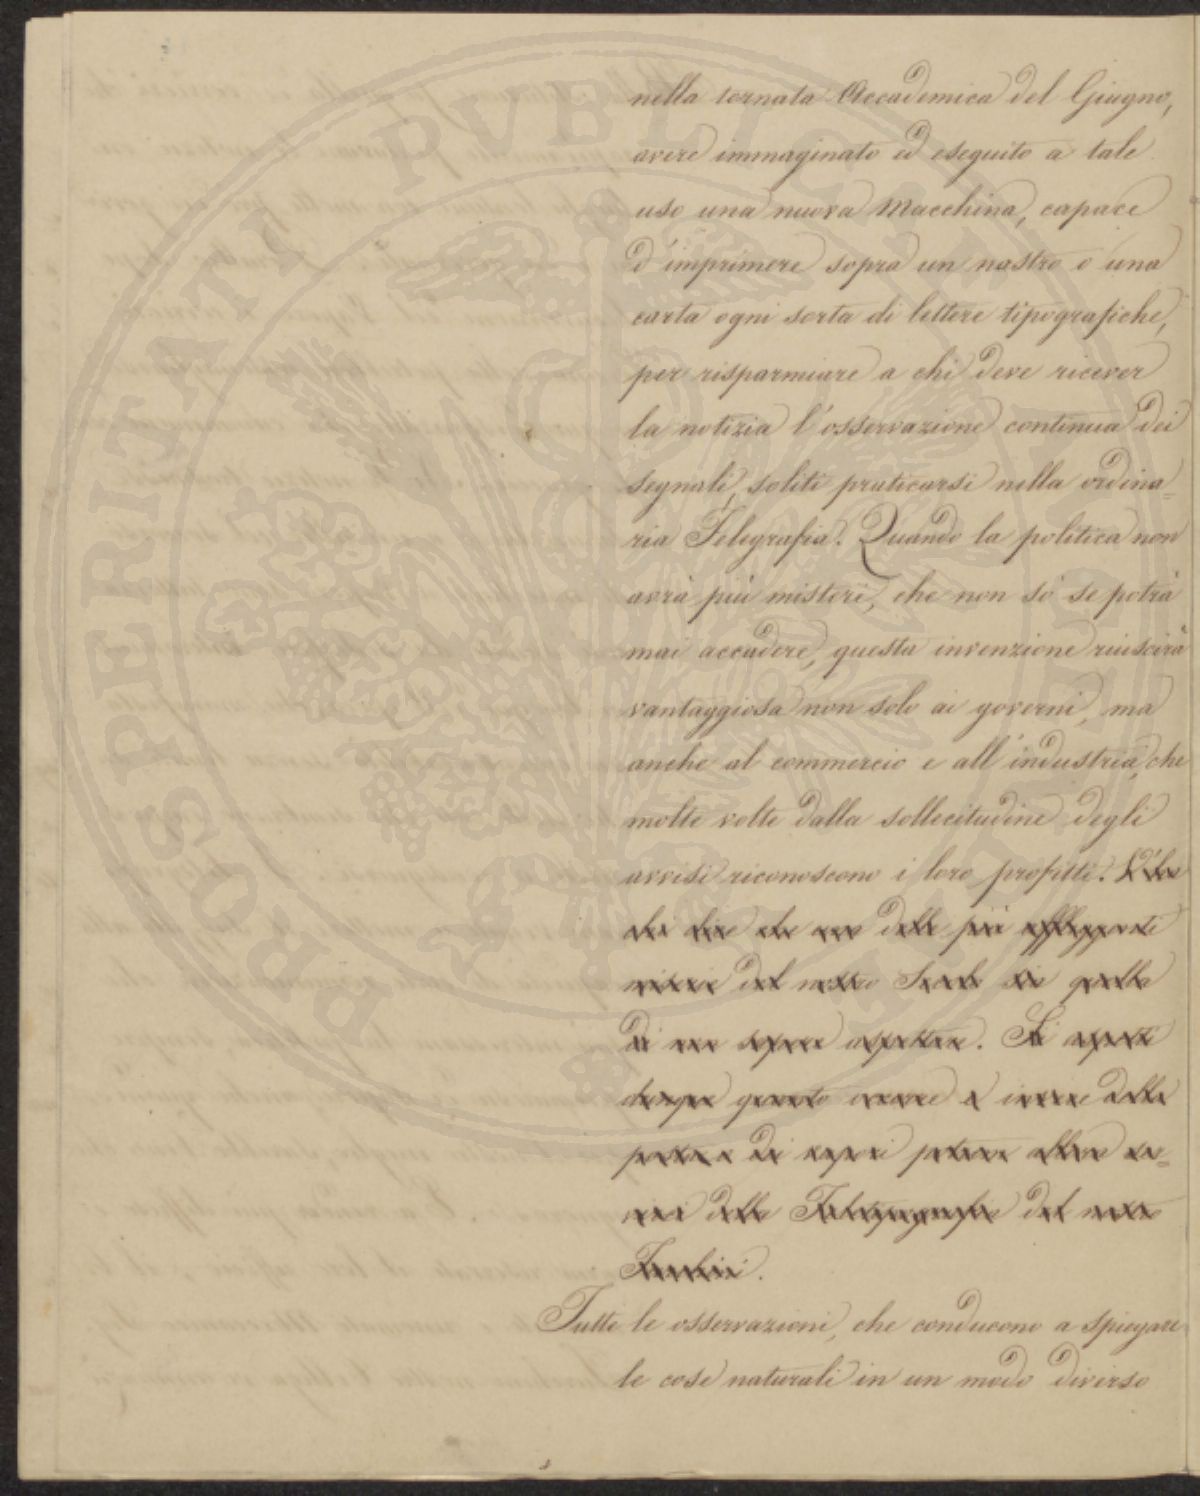 nella tornata Accademica del Giugno,
avere immaginato ed eseguito a tale
uso una nuova Macchina, capace
d'imprimere sopra un nastro o una
carta ogni sorta di lettere tipografiche,
per risparmiare a chi deve ricever
la notizia l'osservazione continua dei
segnali, soliti praticarsi nella ordina=
ria Telegrafia. Quando la politica non
avrà più misteri, che non sò se potrà
mai accadere, questa invenzione riuscirà
vantaggiosa non solo ai governi, ma
anche al commercio e all'industria, che
molte volte dalla sollecitudine degli
avvisi riconoscono i loro profitti.
delle più
del nostro Secolo sia quella
di non sapere aspettare. Si aspetti
dunque
di
della del
Tutte le osservazioni, che conducono a spiegare
le cose naturali in un modo diverso
PROSPERITATI PVBLICAE